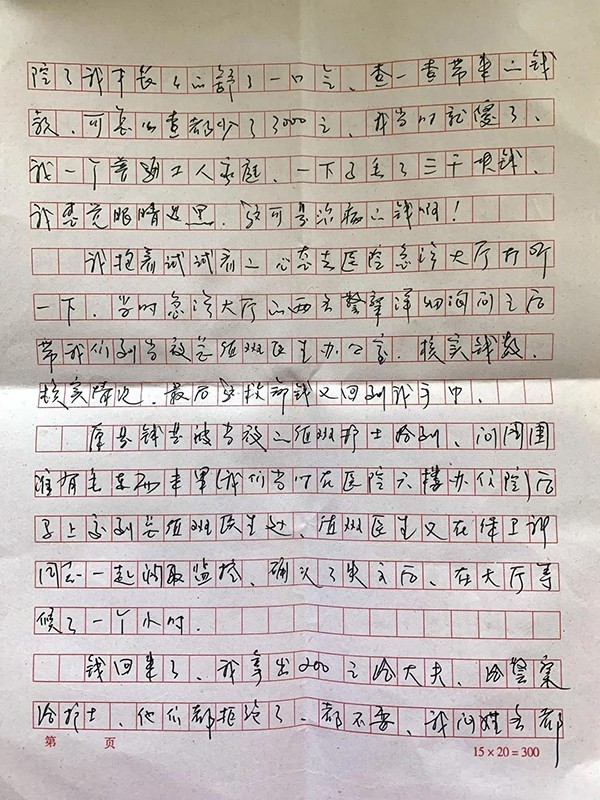 院了我才长长的舒了一口气、查一查带来的钱
数、可怎么查都少了3000元、我当时就傻了、
我一个普通工人家庭、一下子丢了三千块钱、
我感觉眼睛发黑、这可是治病的钱啊！
我抱着试试看的心态去医院急诊大厅打听
一下、当时急诊大厅的两名警察详细询问之后
带我们到当夜总值班医生办公室、核实钱数、
核实情况、最后这救命钱又回到我手中、
原来钱是被当夜的值班护士拾到、问周围
谁有丢东西未果(我们当时在医院六楼办住院)后
马上交到总值班医生处、值班医生又在保卫科
同志一起调取监控、确认了失主后、在大厅等
候了一个小时.
钱回来了、我拿出200元给大夫、给警察
给护士、他们都拒绝了、都不要、我问姓名都
第 页
15×20=300